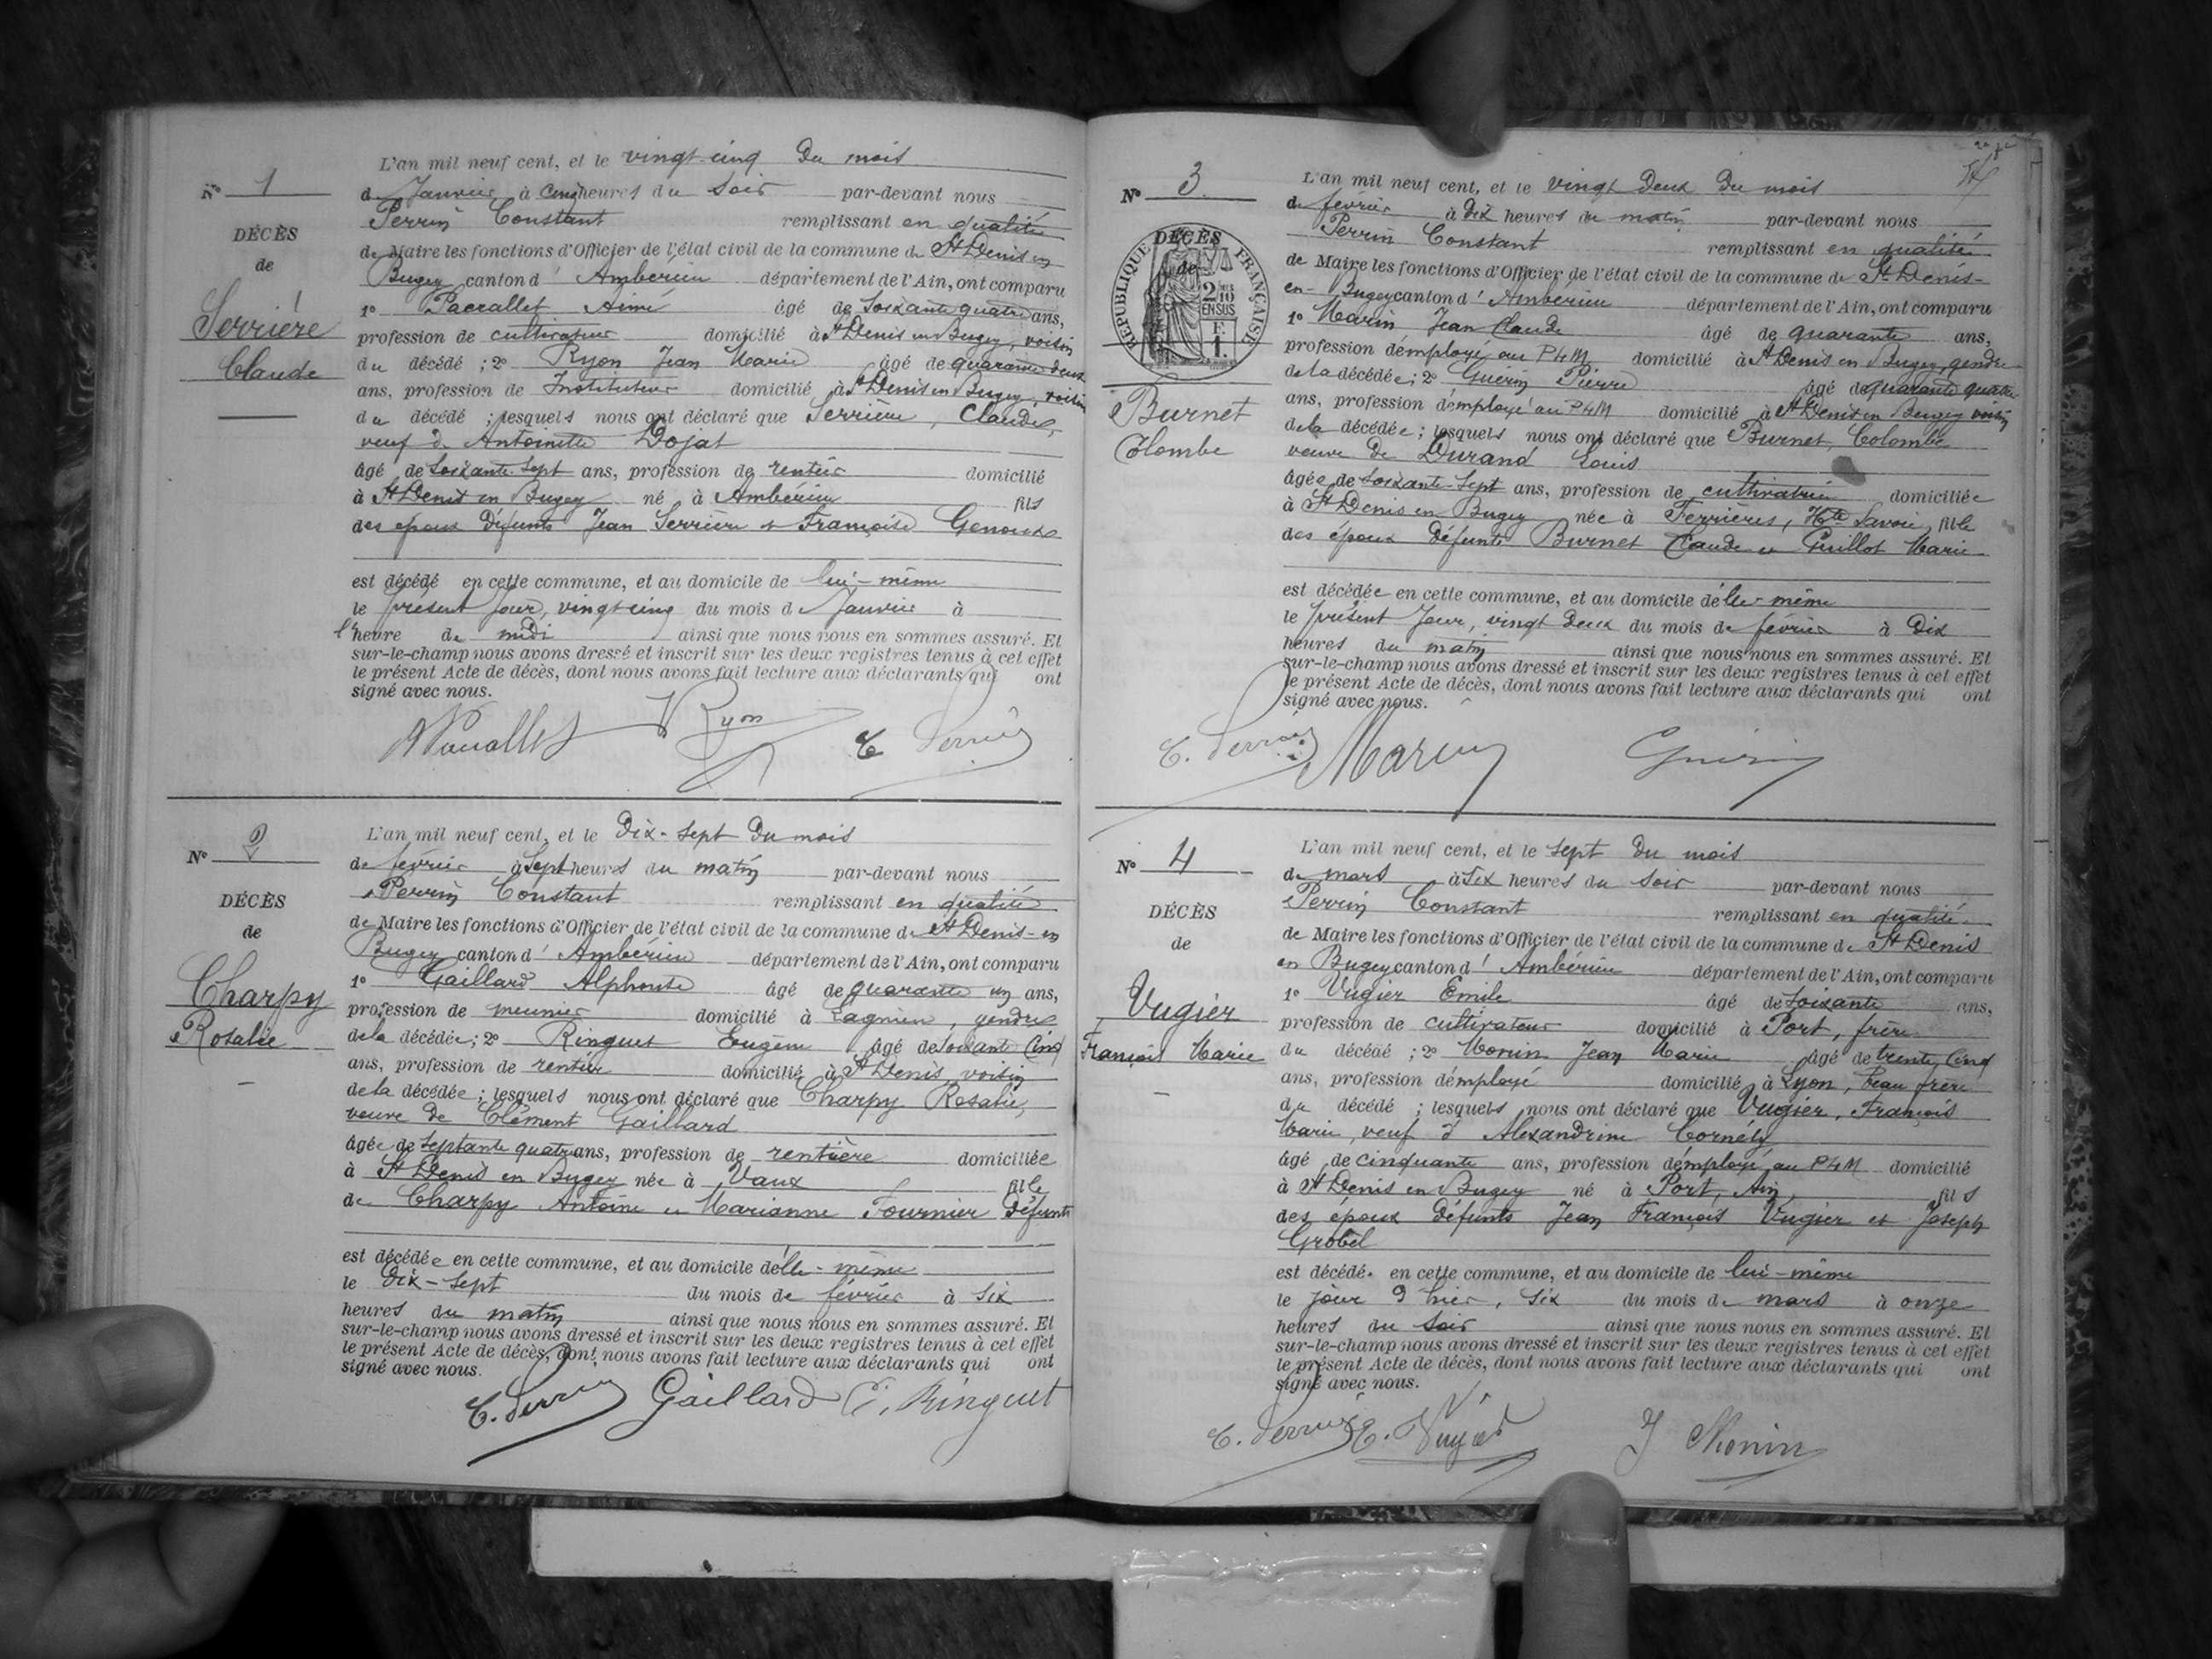 N° 1
DÉCÈS
de
Serrière
Claude
L'an mil neuf cent, et le vingt-cinq du mois
de Janvier à cinq heures du soir par-devant nous
Perrin Constant remplissant en qualité
de Maire les fonctions d'Officier de l'état civil de la commune de St Denis en
Bugey canton d'Ambérieu département de l'Ain, ont comparu
1° Pacrallet Aimé âgé de soixante quatre ans,
profession de cultivateur domicilié à St Denis en Bugey, voisin
du décédé ; 2° Ryon Jean Marie âgé de quarante deux
ans, profession de Instituteur domicilié à St Denis en Bugey, voisin
du décédé ; lesquels nous ont déclaré que Serrière, Claude,
veuf de Antoinette Dojat
âgé de soixante-sept ans, profession de rentier domicilié
à St Denis en Bugey né à Ambérieu fils
des époux défunts Jean Serrière et Françoise Genoux
est décédé en cette commune, et au domicile de lui-même
le présent jour, vingt-cinq du mois de Janvier à
l'heure de midi ainsi que nous nous en sommes assuré. Et
sur-le-champ nous avons dressé et inscrit sur les deux registres tenus à cet effet
le présent Acte de décès, dont nous avons fait lecture aux déclarants qui ont
signé avec nous.
Ryon C. Perrin
N° 2
DÉCÈS
de
Charpy
Rosalie
L'an mil neuf cent, et le dix-sept du mois
de février à sept heures du matin par-devant nous
Perrin Constant remplissant en qualité
de Maire les fonctions d'Officier de l'état civil de la commune de St Denis-en
Bugey canton d'Ambérieu département de l'Ain, ont comparu
1° Gaillard Alphonse âgé de quarante un ans,
profession de meunier domicilié à Lagnieu, gendre
de la décédée ; 2° Ringuet Eugène âgé de soixante cinq
ans, profession de rentier domicilié à St Denis, voisin
de la décédée ; lesquels nous ont déclaré que Charpy Rosalie,
veuve de Clément Gaillard
âgée de septante quatre ans, profession de rentière domiciliée
à St Denis en Bugey née à Vaux fille
de Charpy Antoine et Marianne Fournier défunts
est décédée en cette commune, et au domicile d'elle-même
le dix-sept du mois de février à six
heures du matin ainsi que nous nous en sommes assuré. Et
sur-le-champ nous avons dressé et inscrit sur les deux registres tenus à cet effet
le présent Acte de décès, dont nous avons fait lecture aux déclarants qui ont
signé avec nous.
C. Perrin Gaillard E. Ringuet
N° 3
RÉPUBLIQUE FRANÇAISE
DÉCÈS
de
2/10 EN SUS
F. 1.
Burnet
Colombe
L'an mil neuf cent, et le vingt deux du mois
de février à dix heures du matin par-devant nous
Perrin Constant remplissant en qualité
de Maire les fonctions d'Officier de l'état civil de la commune de St Denis-
en-Bugey canton d'Ambérieu département de l'Ain, ont comparu
1° Marin Jean Claude âgé de quarante ans,
profession d'employé au PLM domicilié à St Denis en Bugey, gendre
de la décédée ; 2° Guérin Pierre âgé de quarante quatre
ans, profession d'employé au PLM domicilié à St Denis en Bugey voisin
de la décédée ; lesquels nous ont déclaré que Burnet, Colombe
veuve de Durand Louis
âgée de soixante-sept ans, profession de cultivatrice domiciliée
à St Denis en Bugey née à Ferrières, Hte Savoie, fille
des époux défunts Burnet Claude et Guillot Marie
est décédée en cette commune, et au domicile d'elle-même
le présent jour, vingt deux du mois de février à dix
heures du matin ainsi que nous nous en sommes assuré. Et
sur-le-champ nous avons dressé et inscrit sur les deux registres tenus à cet effet
le présent Acte de décès, dont nous avons fait lecture aux déclarants qui ont
signé avec nous.
C. Perrin Marin Guérin
N° 4
DÉCÈS
de
Vugier
François Marie
L'an mil neuf cent, et le sept du mois
de mars à six heures du soir par-devant nous
Perrin Constant remplissant en qualité
de Maire les fonctions d'Officier de l'état civil de la commune de St Denis
en Bugey canton d'Ambérieu département de l'Ain, ont comparu
1° Vugier Emile âgé de soixante ans,
profession de cultivateur domicilié à Port, frère
du décédé ; 2° Monin Jean Marie âgé de trente cinq
ans, profession d'employé domicilié à Lyon, beau frère
du décédé ; lesquels nous ont déclaré que Vugier, François
Marie, veuf d'Alexandrine Cornély
âgé de cinquante ans, profession d'employé au PLM domicilié
à St Denis en Bugey né à Port, Ain, fils
des époux défunts Jean François Vugier et Joseph
Grobel
est décédé en cette commune, et au domicile de lui-même
le jour d'hier, six du mois de mars à onze
heures du soir ainsi que nous nous en sommes assuré. Et
sur-le-champ nous avons dressé et inscrit sur les deux registres tenus à cet effet
le présent Acte de décès, dont nous avons fait lecture aux déclarants qui ont
signé avec nous.
C. Perrin E. Vugier J Monin